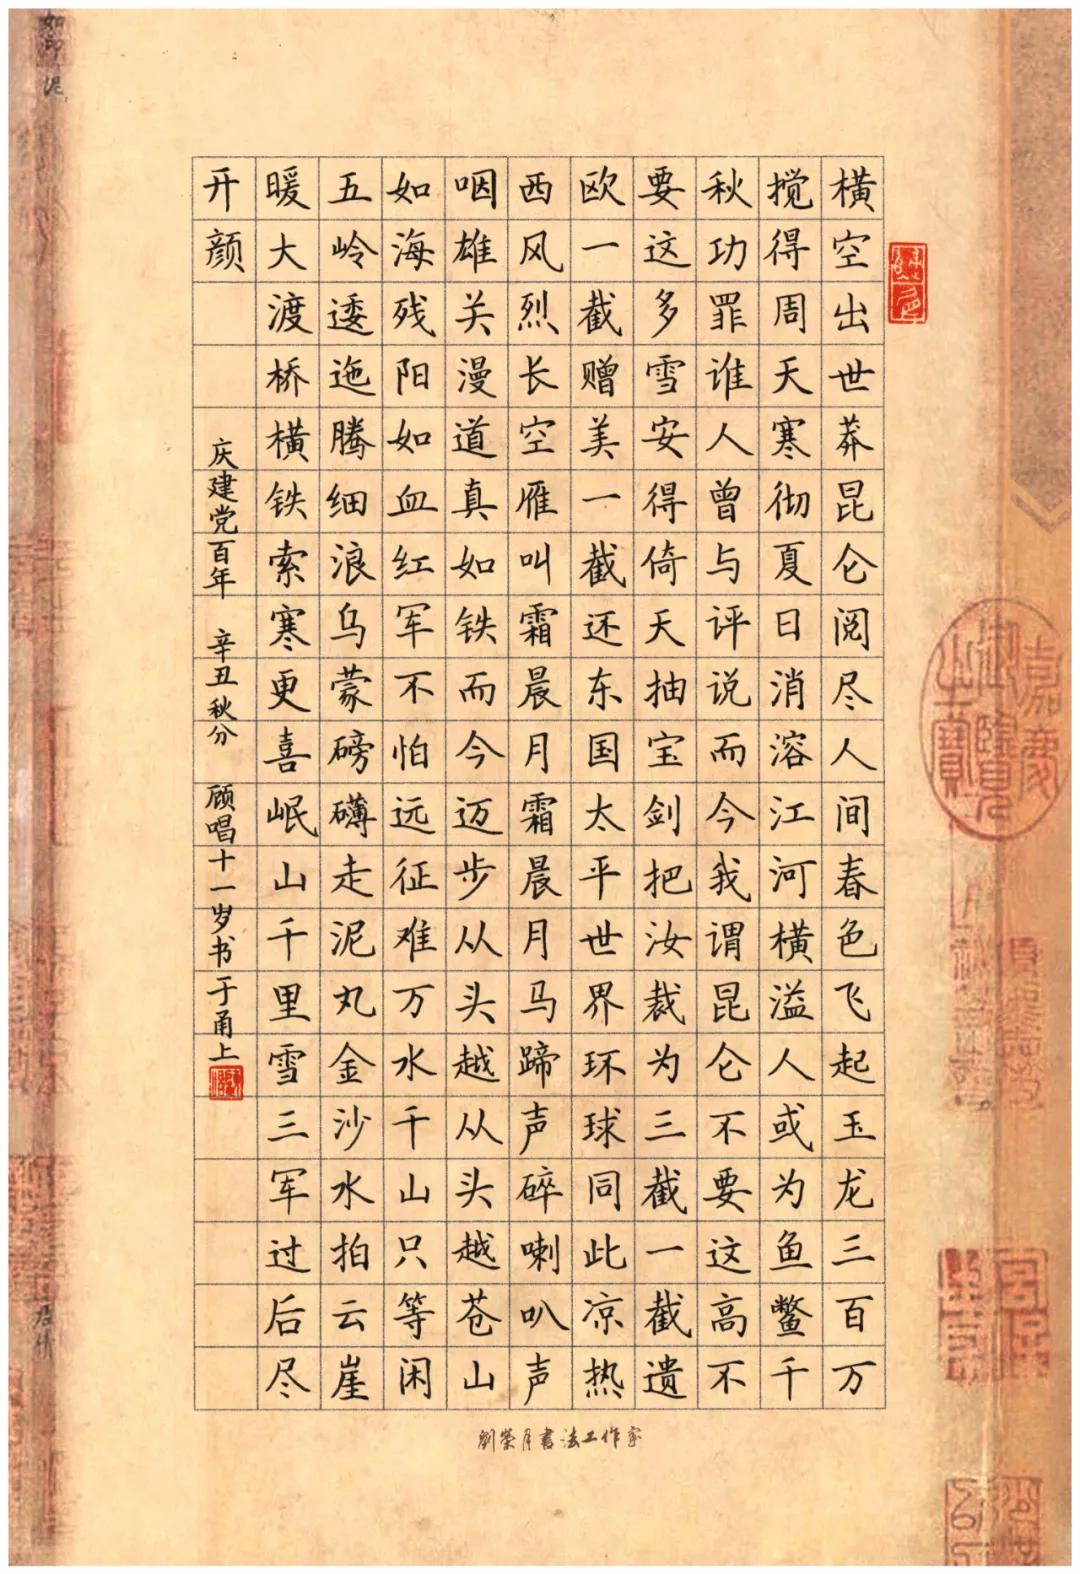 横空出世莽昆仑阅尽人间春色飞起玉龙三百万
搅得周天寒彻夏日消溶江河横溢人或为鱼鳖千
秋功罪谁人曾与评说而今我谓昆仑不要这高不
要这多雪安得倚天抽宝剑把汝裁为三截一截遗
欧一截赠美一截还东国太平世界环球同此凉热
西风烈长空雁叫霜晨月霜晨月马蹄声碎喇叭声
咽雄关漫道真如铁而今迈步从头越从头越苍山
如海残阳如血红军不怕远征难万水千山只等闲
五岭逶迤腾细浪乌蒙磅礴走泥丸金沙水拍云崖
暖大渡桥横铁索寒更喜岷山千里雪三军过后尽
开颜
庆建党百年 辛丑秋分 顾唱十一岁书于甬上
劉榮月書法工作室
嘉慶御覽之寶
如印泥